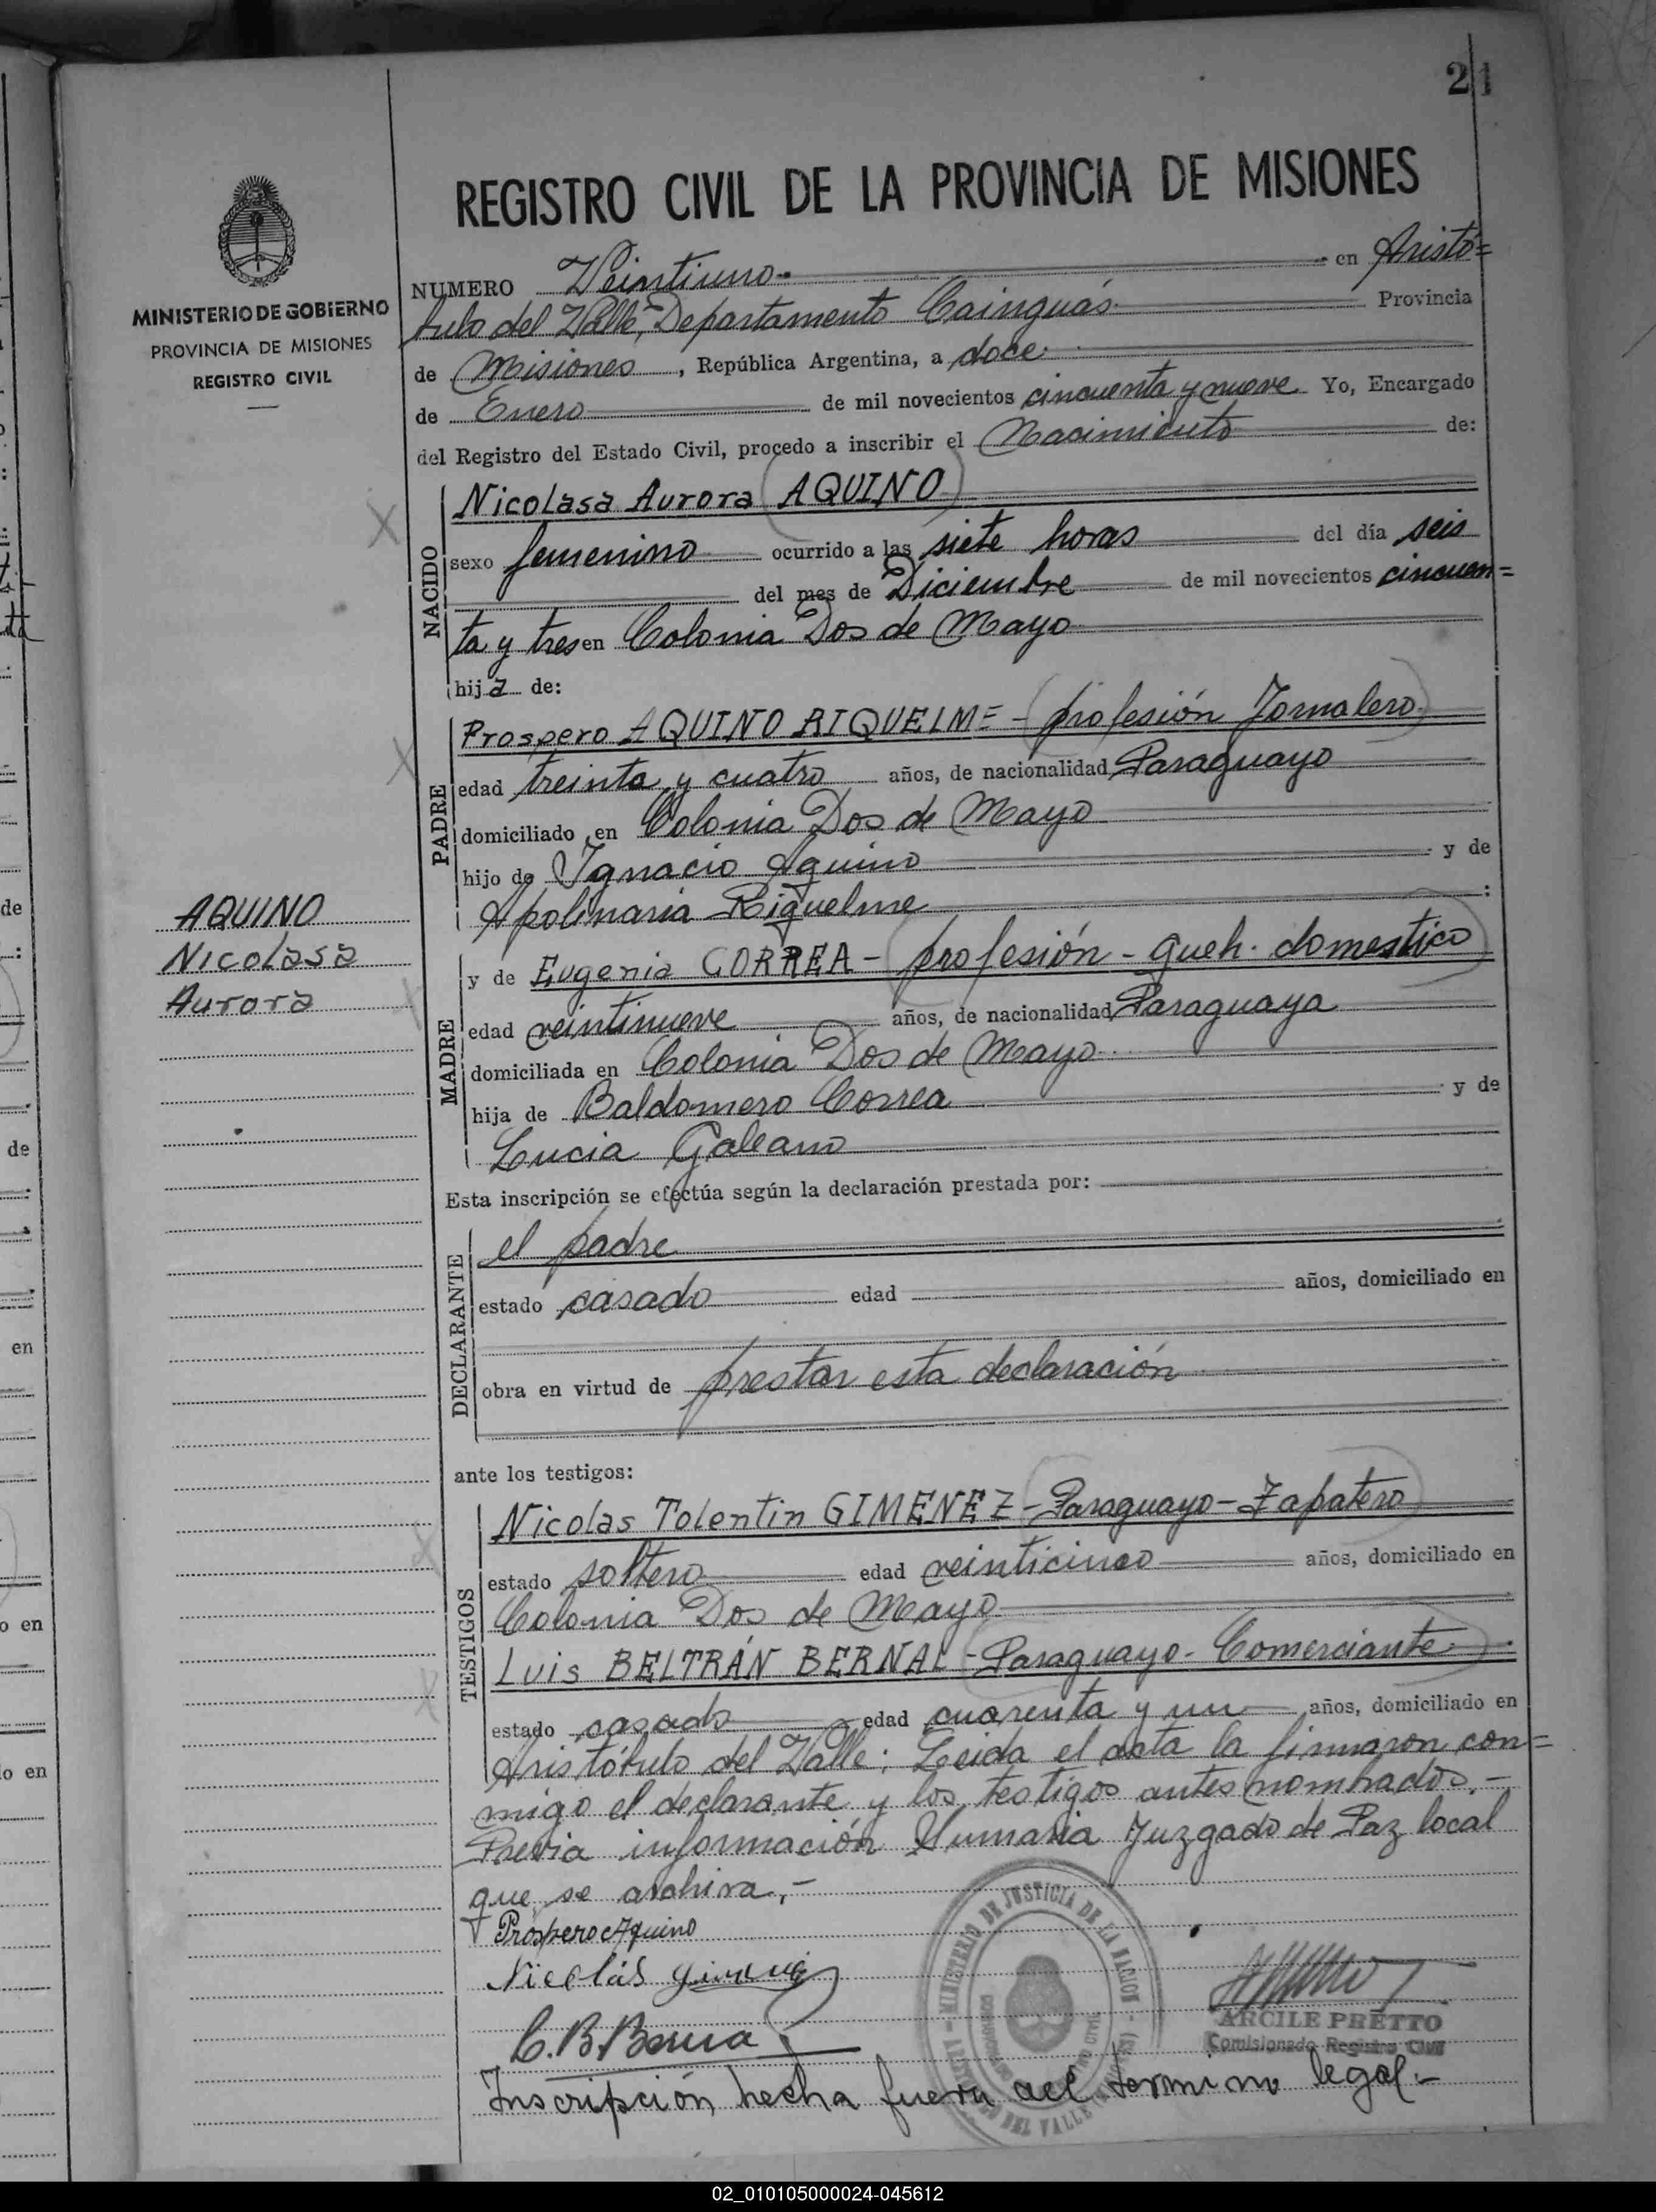 21
REGISTRO CIVIL DE LA PROVINCIA DE MISIONES
MINISTERIO DE GOBIERNO
PROVINCIA DE MISIONES
REGISTRO CIVIL
NUMERO Veintiuno en Aristó=
bulo del Valle, Departamento Cainguás Provincia
de Misiones, República Argentina, a doce
de Enero de mil novecientos cincuenta y nueve Yo, Encargado
del Registro del Estado Civil, procedo a inscribir el Nacimiento de:
NACIDO
Nicolasa Aurora (AQUINO)
sexo femenino ocurrido a las siete horas del día seis
del mes de Diciembre de mil novecientos cincuen=
ta y tres en Colonia Dos de Mayo
hija de:
PADRE
Prospero AQUINO RIQUELME - (profesión Jornalero)
edad treinta y cuatro años, de nacionalidad Paraguayo
domiciliado en Colonia Dos de Mayo
hijo de Ignacio Aquino y de
Apolinaria Riquelme :
AQUINO
Nicolasa
Aurora
MADRE
y de Eugenia CORREA - (profesión - queh. domestico)
edad veintinueve años, de nacionalidad Paraguaya
domiciliada en Colonia Dos de Mayo
hija de Baldomero Correa y de
Lucia Galeano
Esta inscripción se efectúa según la declaración prestada por:
DECLARANTE
el padre
estado casado edad años, domiciliado en
obra en virtud de prestar esta declaración
ante los testigos:
TESTIGOS
Nicolas Tolentin GIMENEZ - Paraguayo - Zapatero
estado soltero edad veinticinco años, domiciliado en
Colonia Dos de Mayo
Luis BELTRÁN BERNAL - Paraguayo - Comerciante
estado casado edad cuarenta y un años, domiciliado en
Aristóbulo del Valle; Leida el acta la firmaron con=
migo el declarante y los testigos antes nombrados.-
Previa información Sumaria Juzgado de Paz local
que se archiva,-
Prospero Aquino
Nicolás
MINISTERIO DE JUSTICIA DE LA NACION
DEL VALLE
ARCILE PRETTO
Comisionado Registro Civil
Inscripción hecha fuera del termino legal.-
02_010105000024-045612